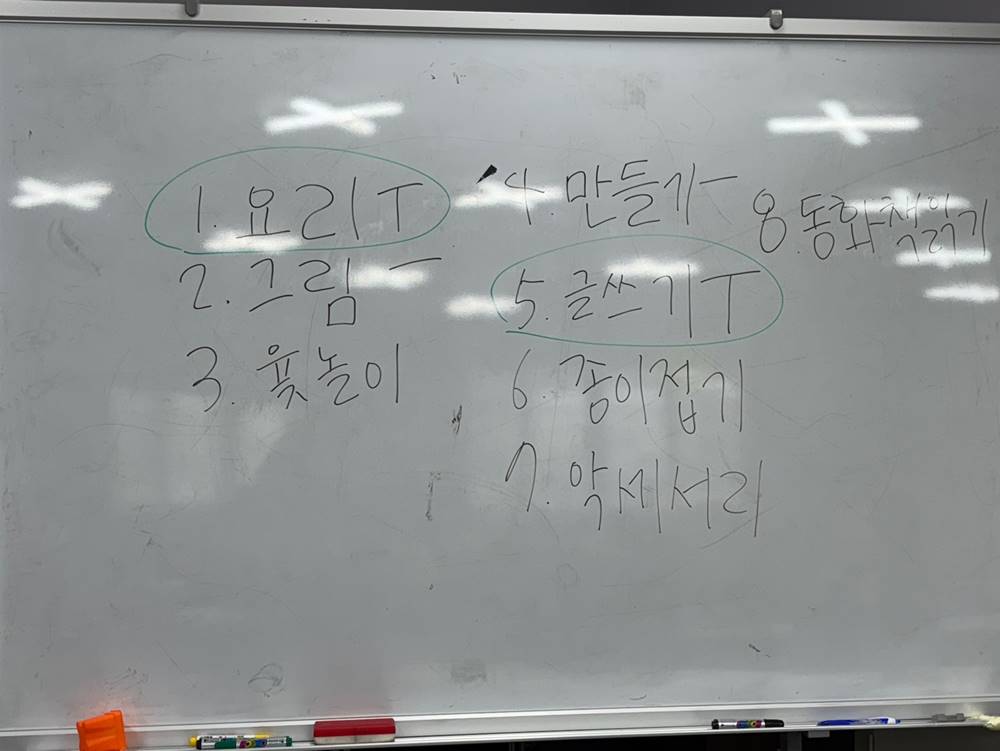 1. 요리 T
2. 그림 ㅡ
3. 윷놀이
4. 만들기 ㅡ
5. 글쓰기 T
6. 종이접기
7. 악세서리
8. 동화책읽기